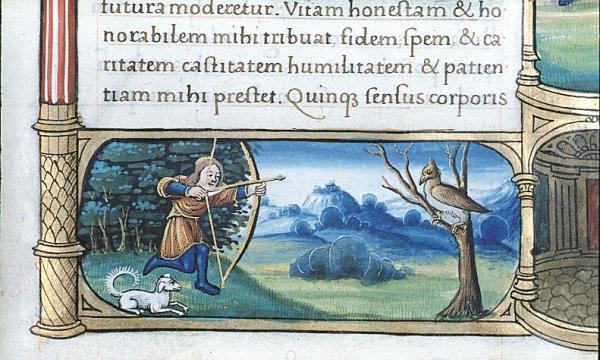 futura moderetur. Vitam honestam & ho
norabilem mihi tribuat, fidem, spem, & ca
ritatem castitatem humilitatem & patien
tiam mihi prestet. Quinqꝫ sensus corporis